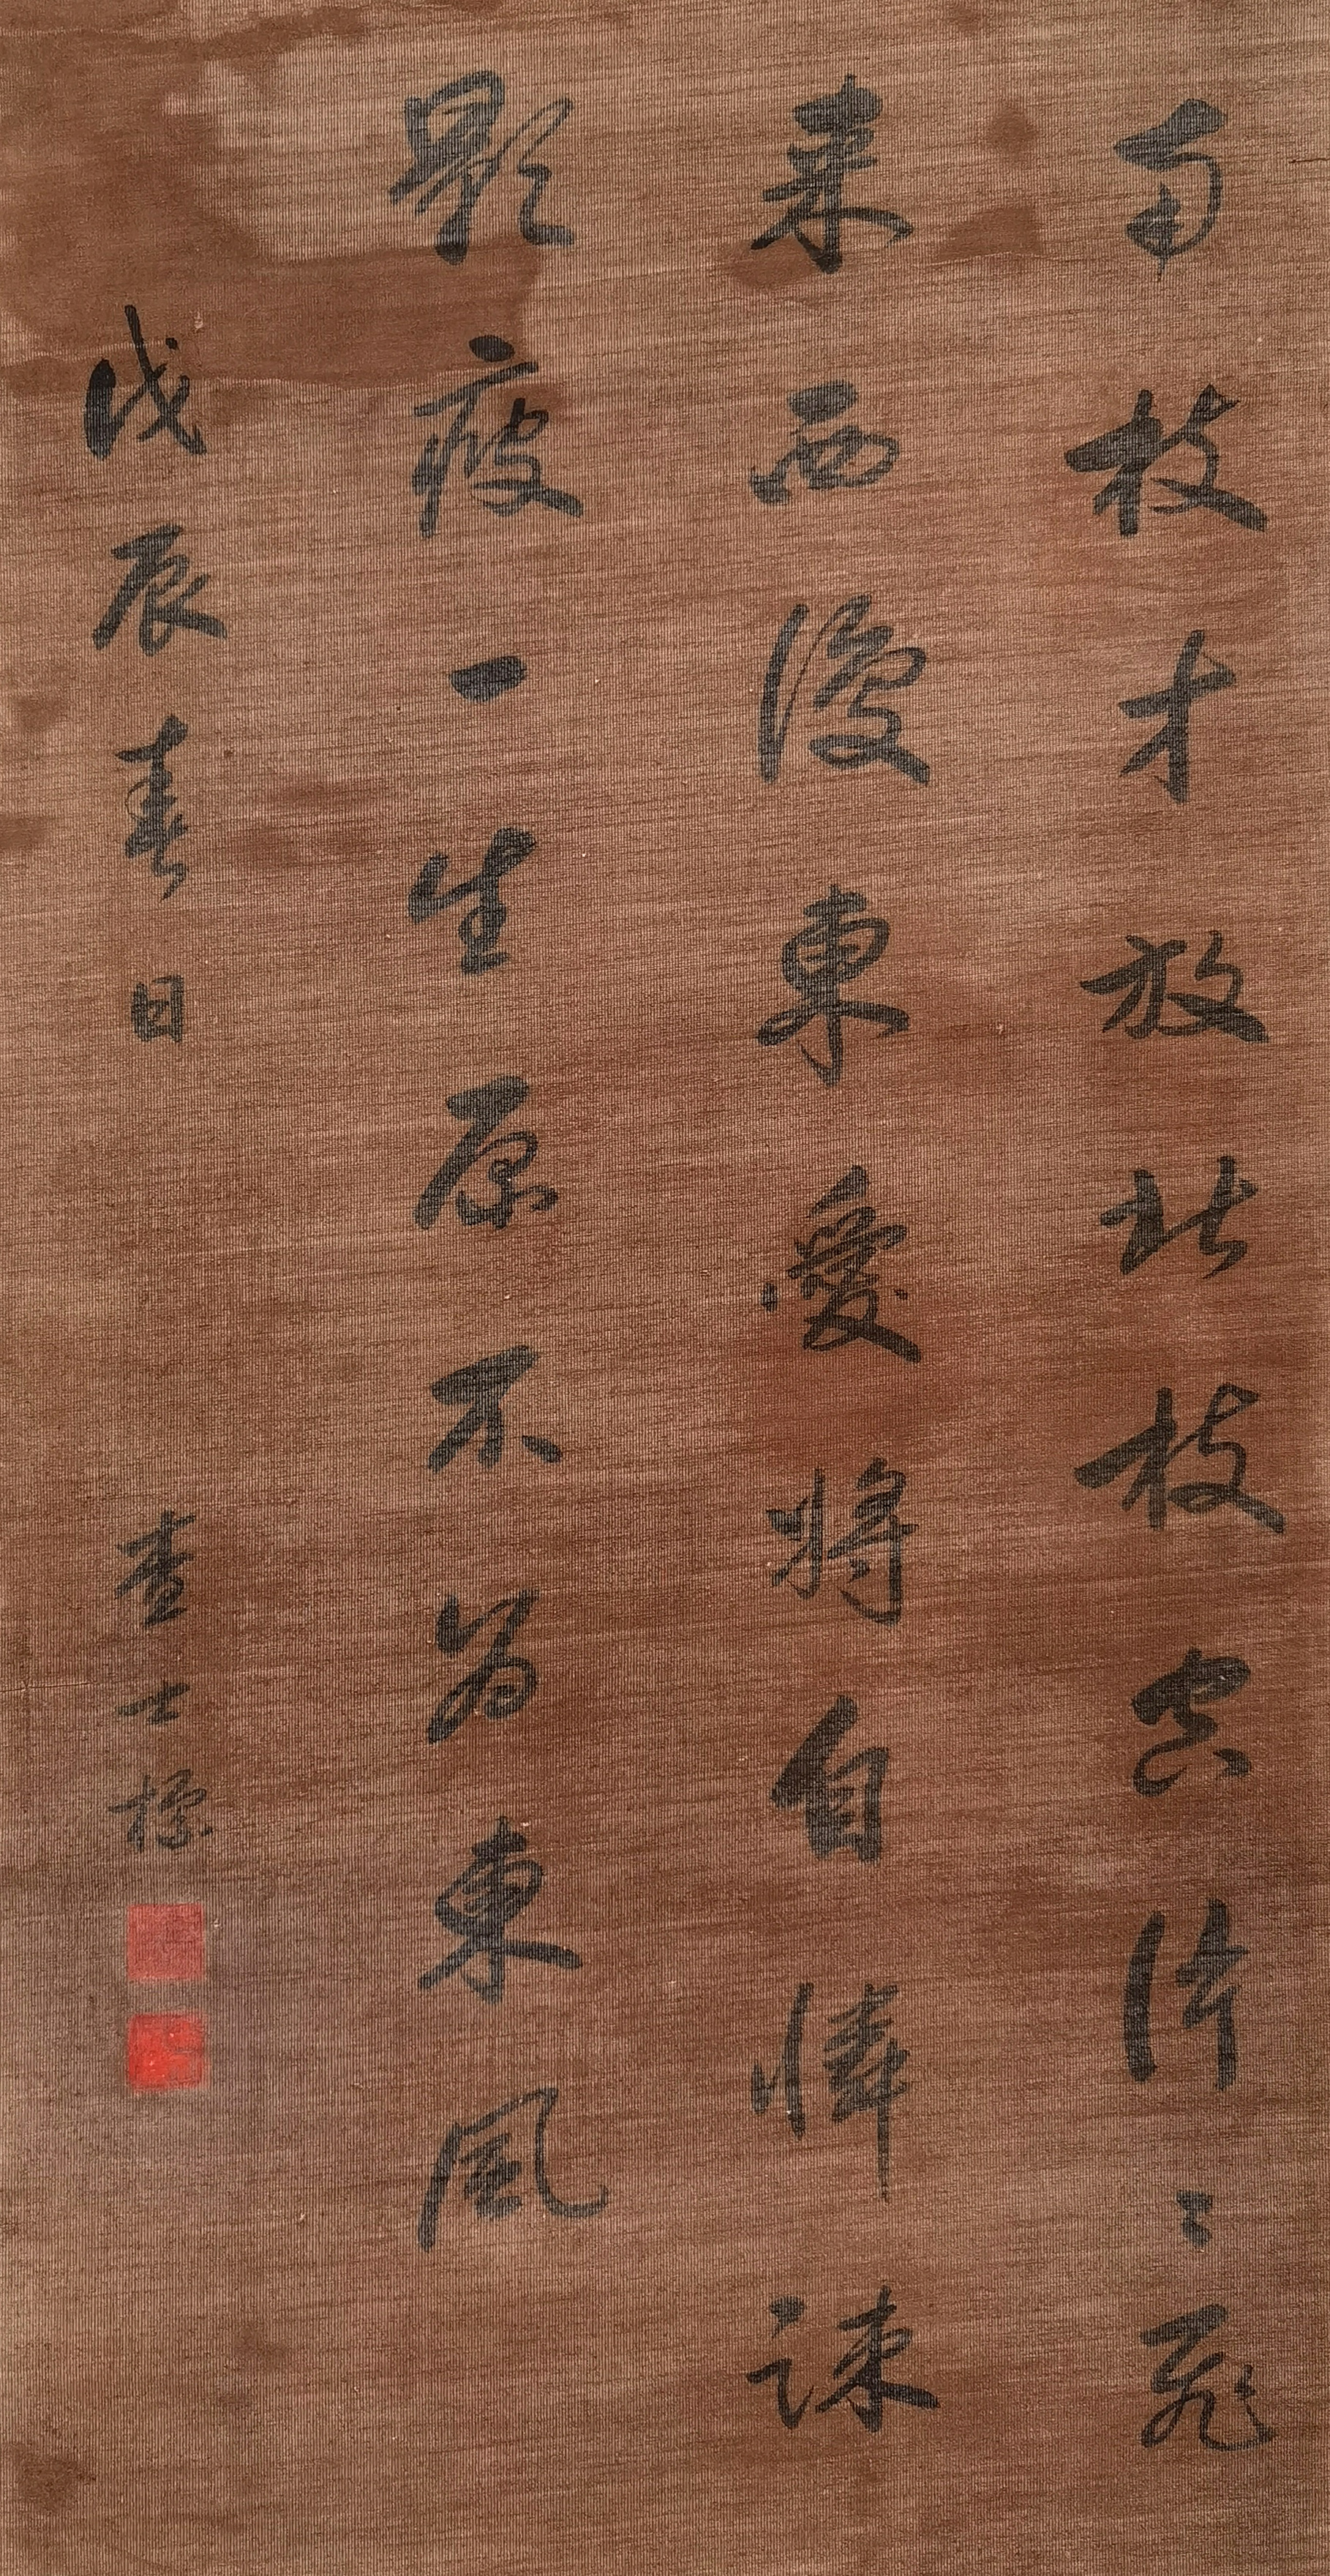 南枝才放北枝空濟々飛
来西復東愛將自憐疎
影瘦一生原不為東風
戊辰春日 查士標